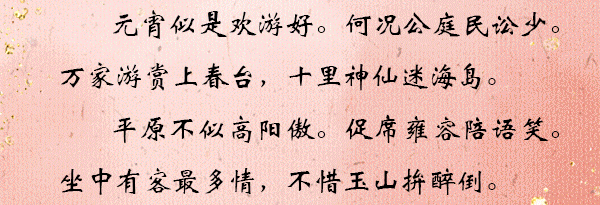 元宵似是欢游好。何况公庭民讼少。
万家游赏上春台，十里神仙迷海岛。
平原不似高阳傲。促席雍容陪语笑。
坐中有客最多情，不惜玉山拚醉倒。